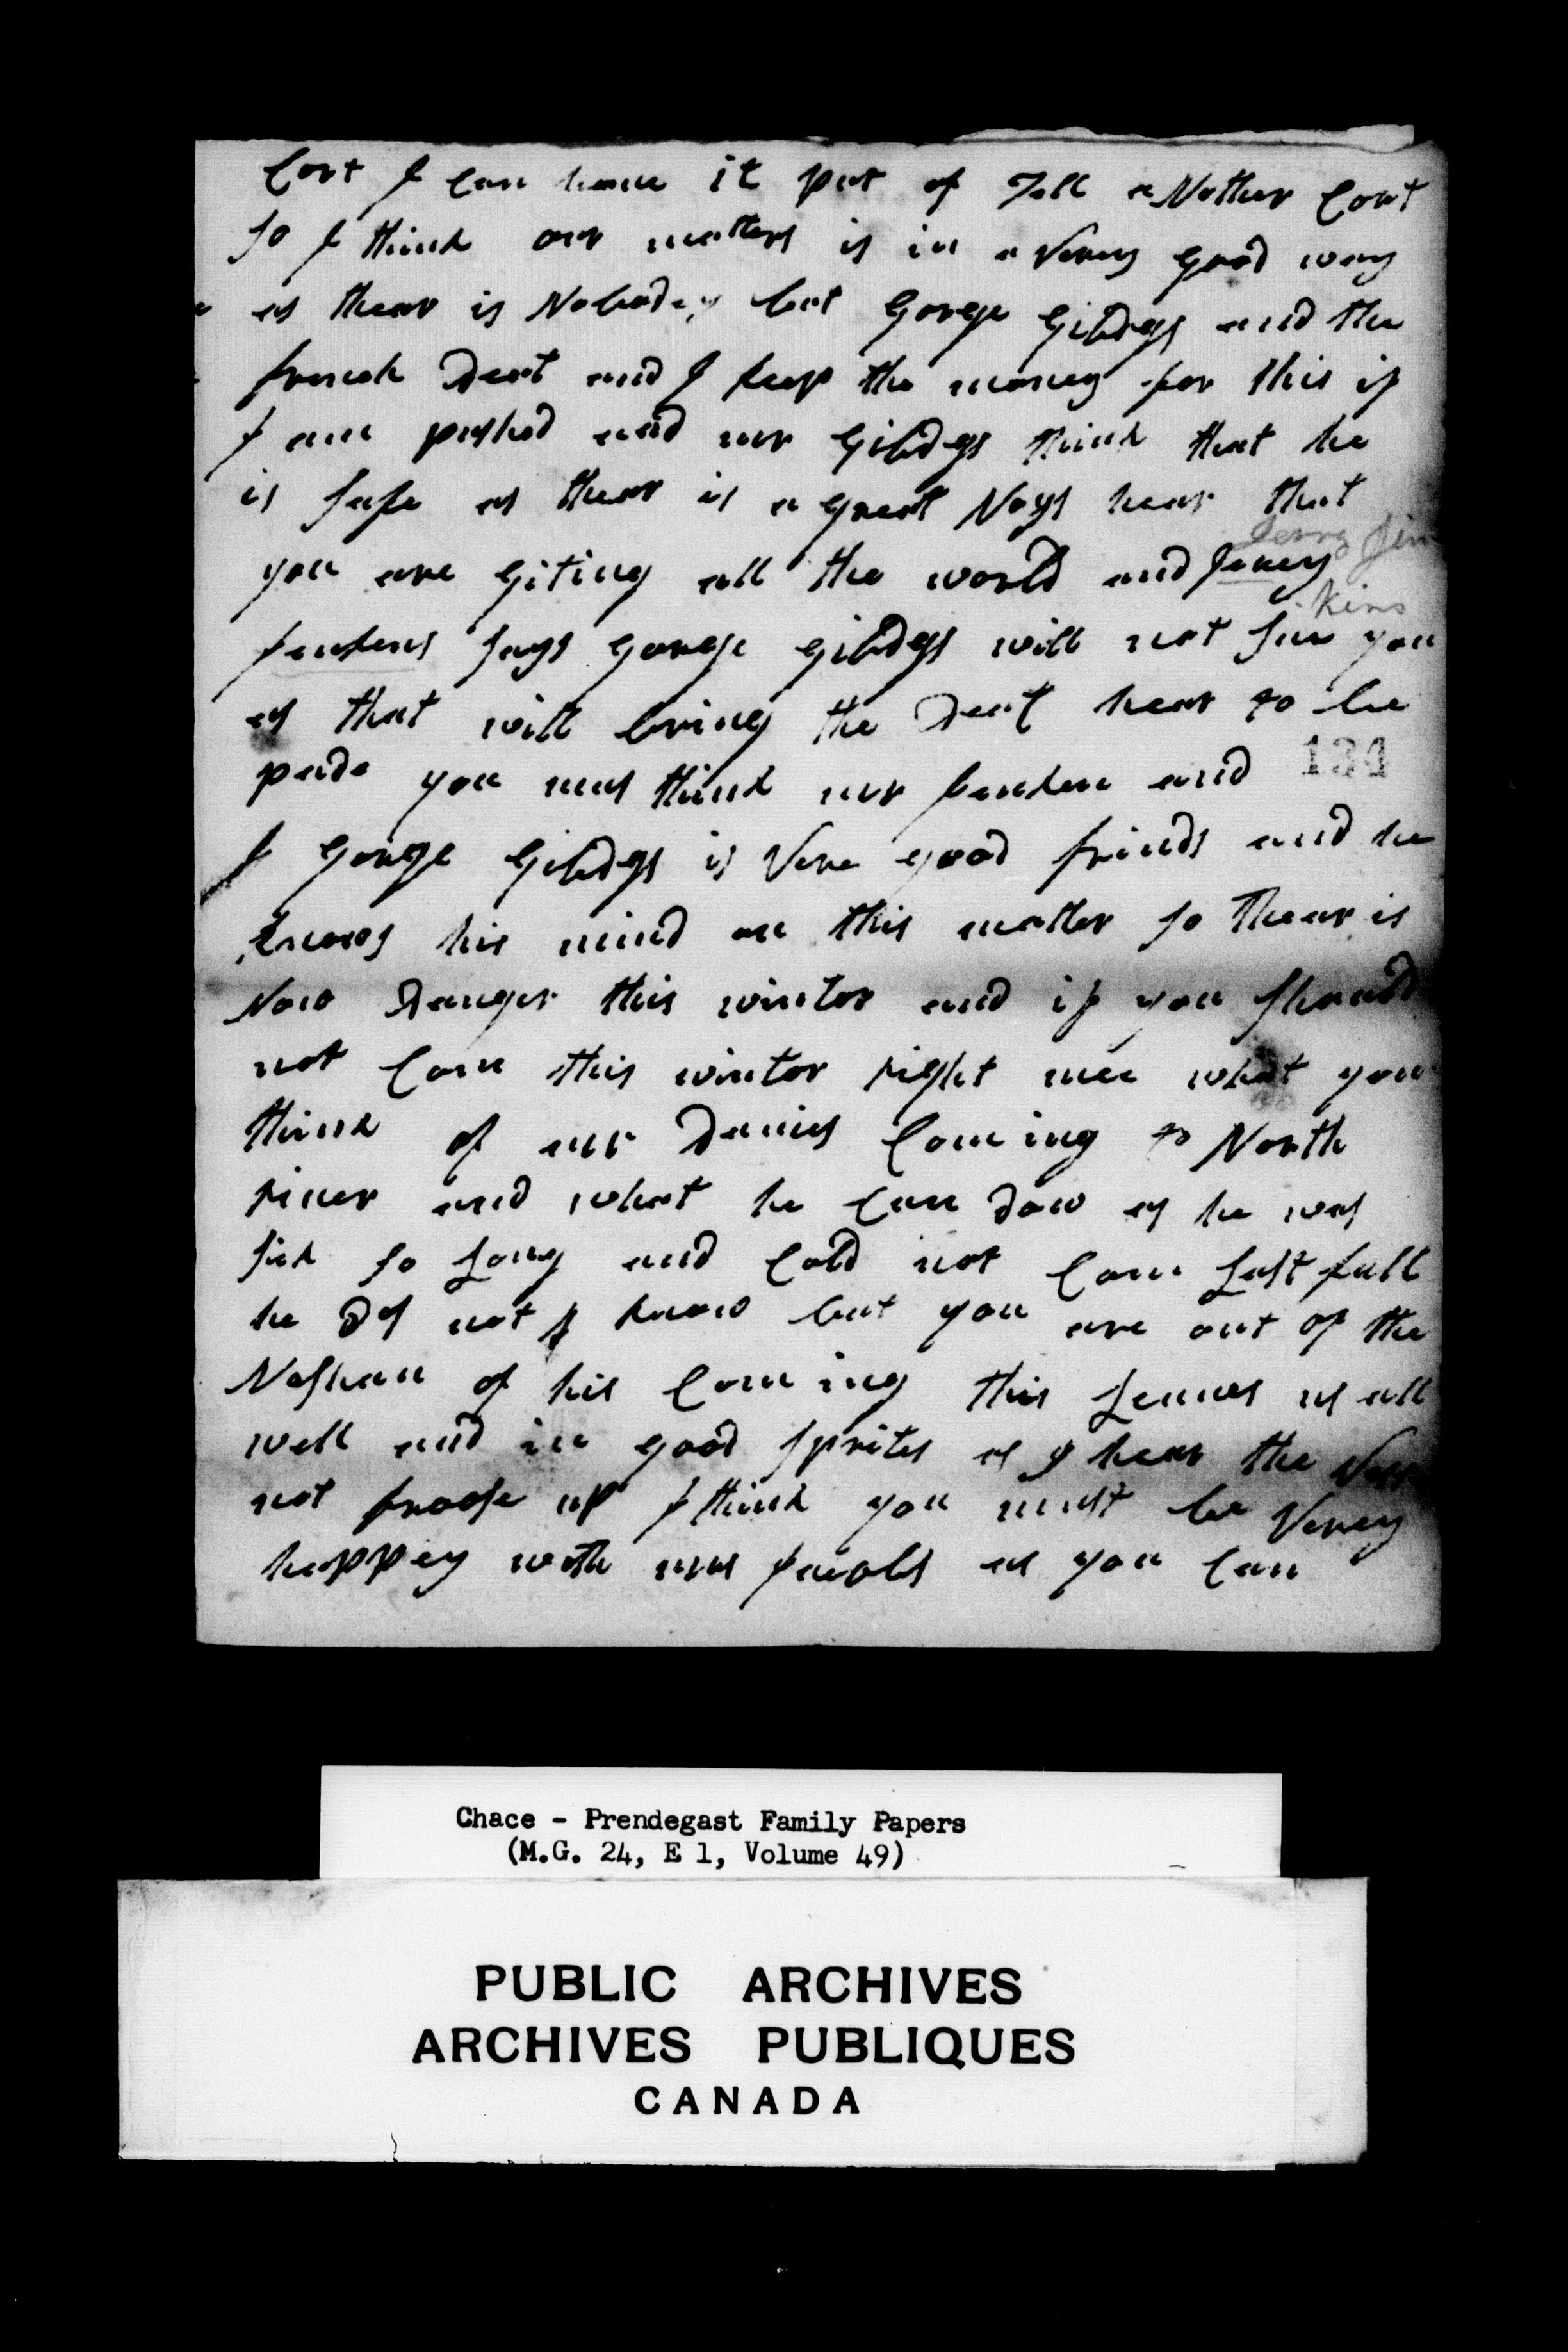 Cort I Can have it put of Tell a Nother Cort
So I think our matters is in a Verey good way
as thear is Nobodey but Gorge Gibdgs and the
french Deat and I keep the money for this if
I am pushed and mr Gibdgs think that he
is safe as thear is a great Noys hear that
Jerry Jin
you are Giting all the world and Jerey
kins
Jenkens says Gorge Gibdgs will not sue you
as that will bring the Deat hear to be
pade you mus think mr Jenken and
134
I Gorge Gibdgs is Vere good frinds and he
knows his mind on this matter so thear is
Now Danger this winter and if you should
not Com this winter right mee what you
think of mr Danies Coming to North
River and what he Can Dow as he was
sick so Long and Cold not Com Last fall
he Ds not I know but you are out of the
Noshan of his Coming this Leaves us all
well and in good sprites as I hear the
not froose up I think you must be Verey
happey with mrs as you Can
Chace - Prendegast Family Papers
(M.G. 24, E 1, Volume 49)
PUBLIC ARCHIVES
ARCHIVES PUBLIQUES
CANADA